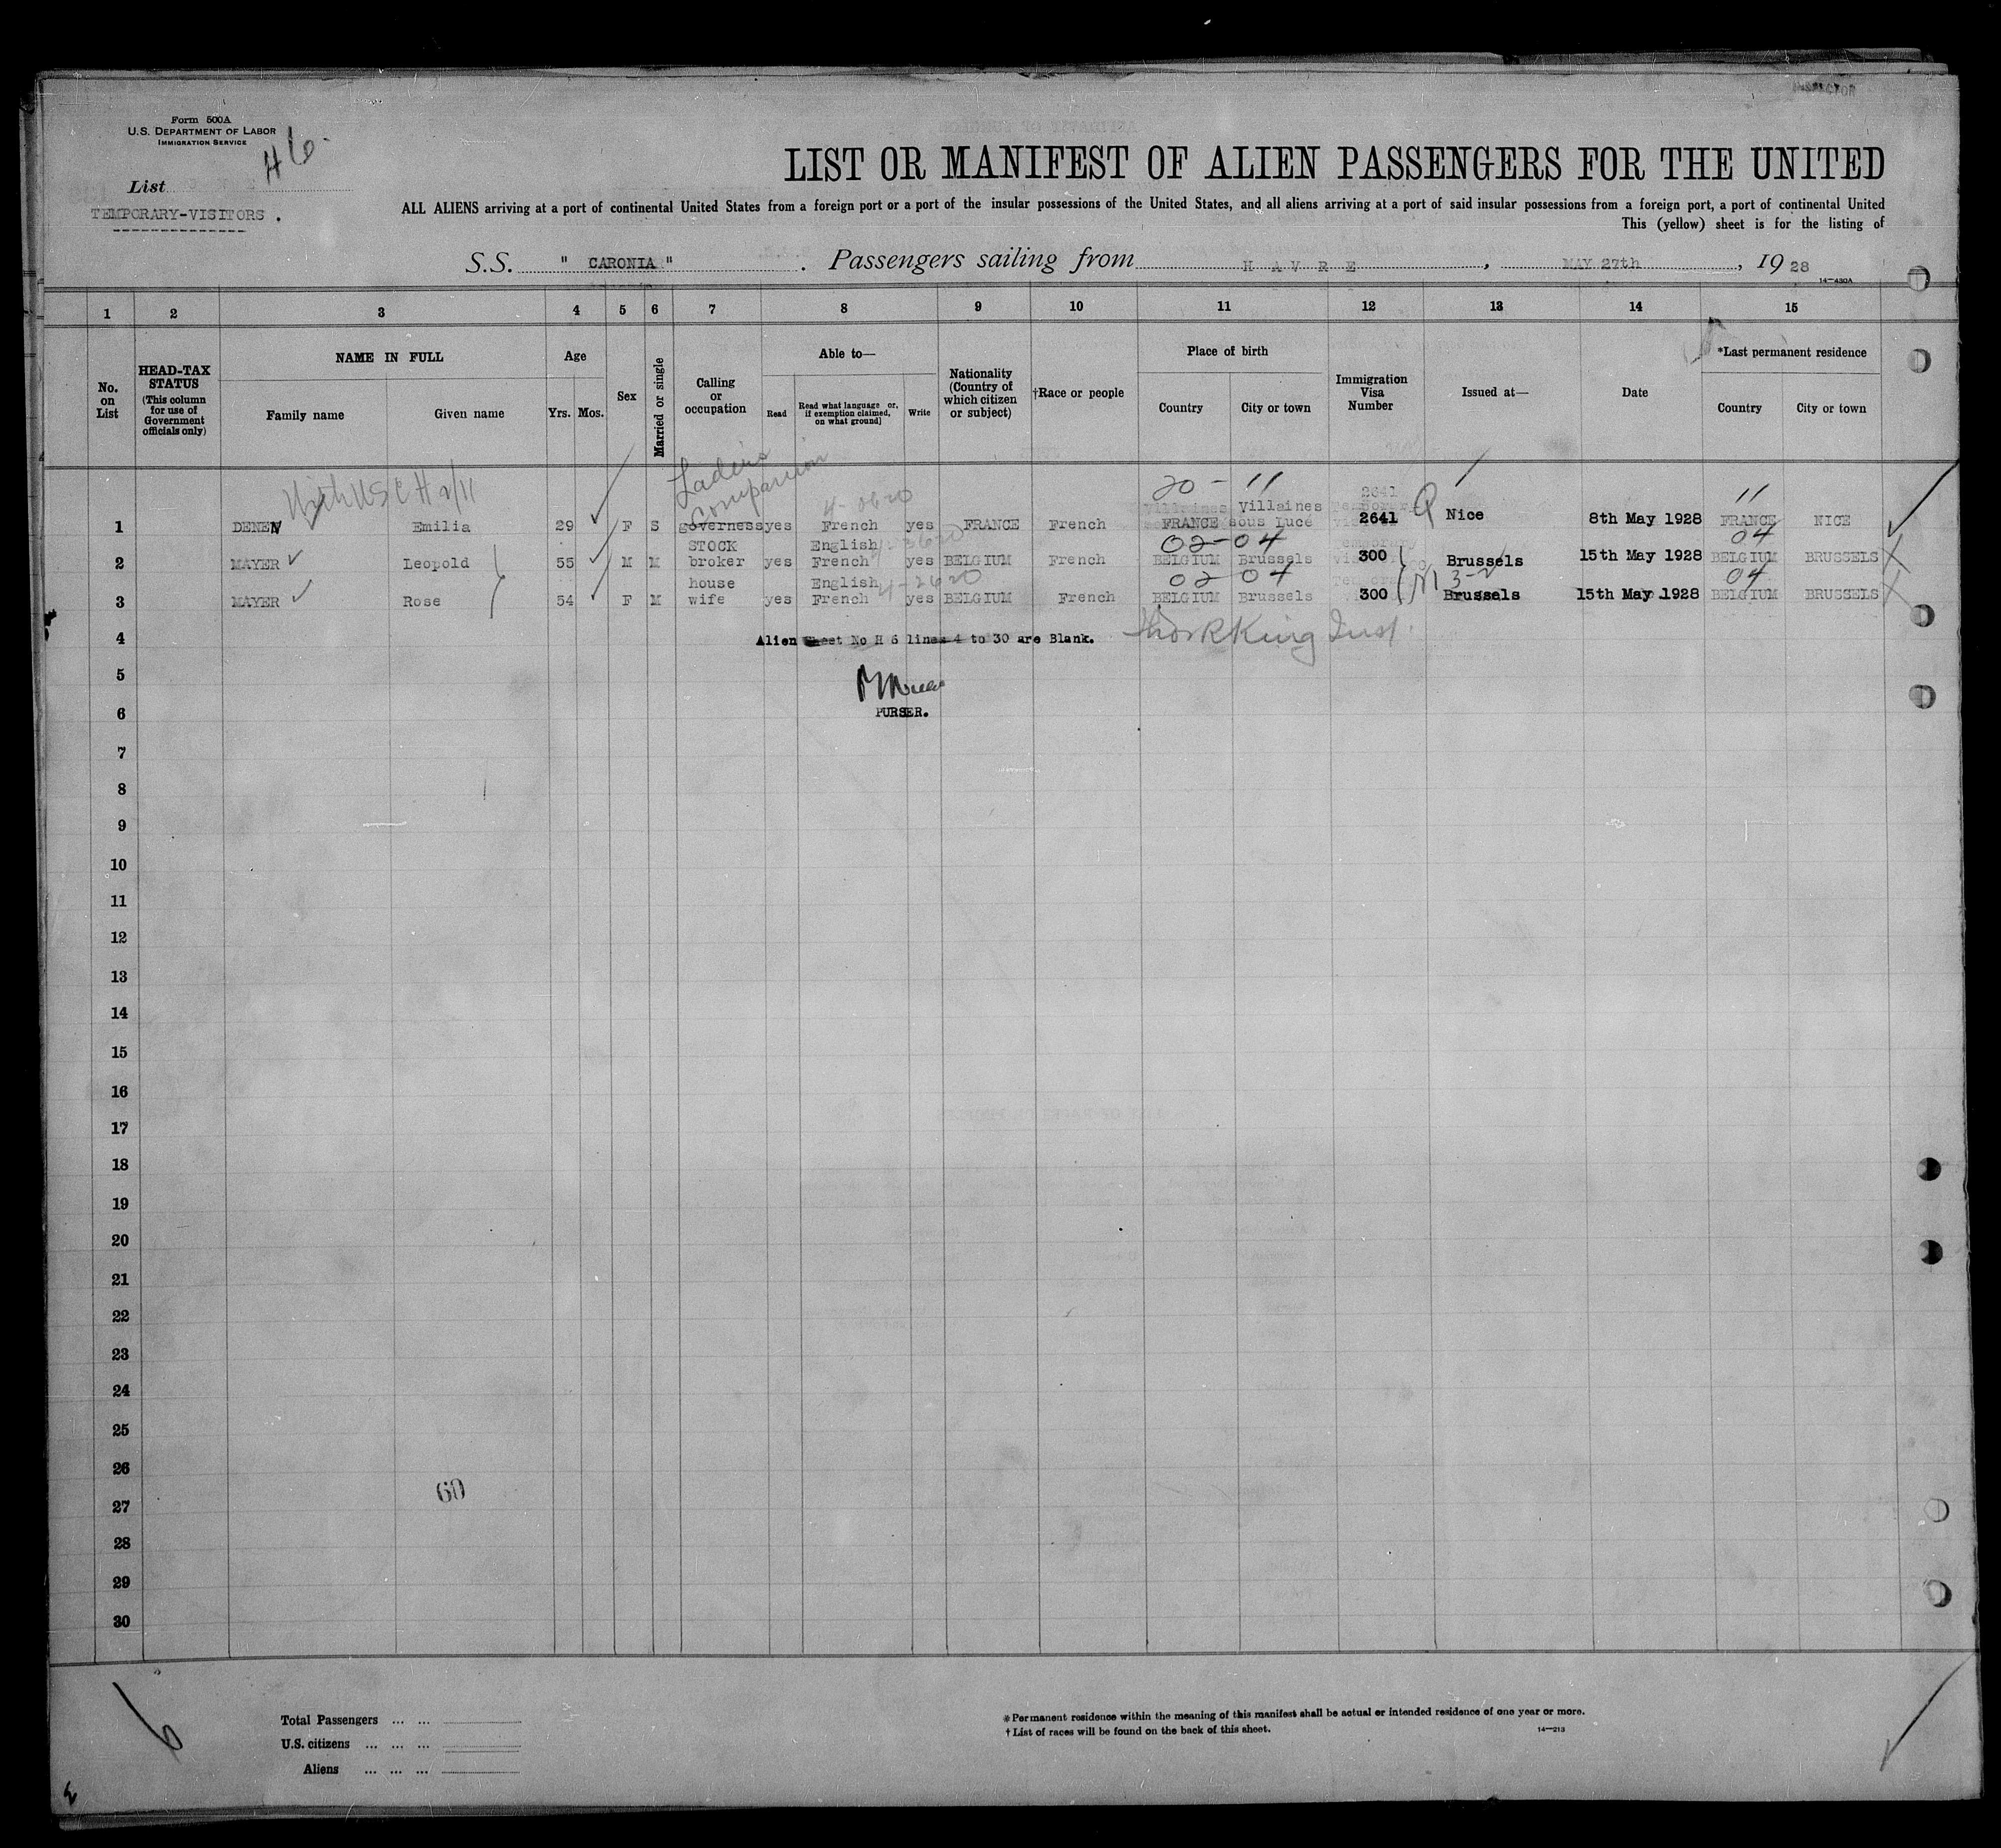 Form 500A
U.S. DEPARTMENT OF LABOR
IMMIGRATION SERVICE
H 6.
List
TEMPORARY-VISITORS .
LIST OR MANIFEST OF ALIEN PASSENGERS FOR THE UNITED
ALL ALIENS arriving at a port of continental United States from a foreign port or a port of the insular possessions of the United States, and all aliens arriving at a port of said insular possessions from a foreign port, a port of continental United
This (yellow) sheet is for the listing of
S.S. " CARONIA " . Passengers sailing from H A V R E , MAY 27th , 19 28
14—430A
1 2 3 4 5 6 7 8 9 10 11 12 13 14 15
No. on List
HEAD-TAX STATUS (This column for use of Government officials only)
NAME IN FULL
Family name Given name
Age
Yrs. Mos.
Sex
Married or single
Calling or occupation
Able to—
Read
Read what language or, if exemption claimed, on what ground
Write
Nationality (Country of which citizen or subject)
†Race or people
Place of birth
Country City or town
Immigration Visa Number
Issued at—
Date
*Last permanent residence
Country City or town
Ladies companion
4-0620
20 - 11
11
1 DENEN Emilia 29 F S governess yes French yes FRANCE French FRANCE Villaines sous Lucé 2641 Nice 8th May 1928 FRANCE NICE
02-04
04
2 MAYER Leopold 55 M M STOCK broker yes English French yes BELGIUM French BELGIUM Brussels 300 Brussels 15th May 1928 BELGIUM BRUSSELS
4-2620
02 04
3-2
04
3 MAYER Rose 54 F M house wife yes English French yes BELGIUM French BELGIUM Brussels 300 Brussels 15th May 1928 BELGIUM BRUSSELS
4 Alien Sheet No H 6 lines 4 to 30 are Blank. Thos R King Insp.
5
6 PURSER.
7
8
9
10
11
12
13
14
15
16
17
18
19
20
21
22
23
24
25
26
60
27
28
29
30
6
Total Passengers ... ...
U.S. citizens ... ... ...
Aliens ... ... ...
* Permanent residence within the meaning of this manifest shall be actual or intended residence of one year or more.
† List of races will be found on the back of this sheet.
14—213